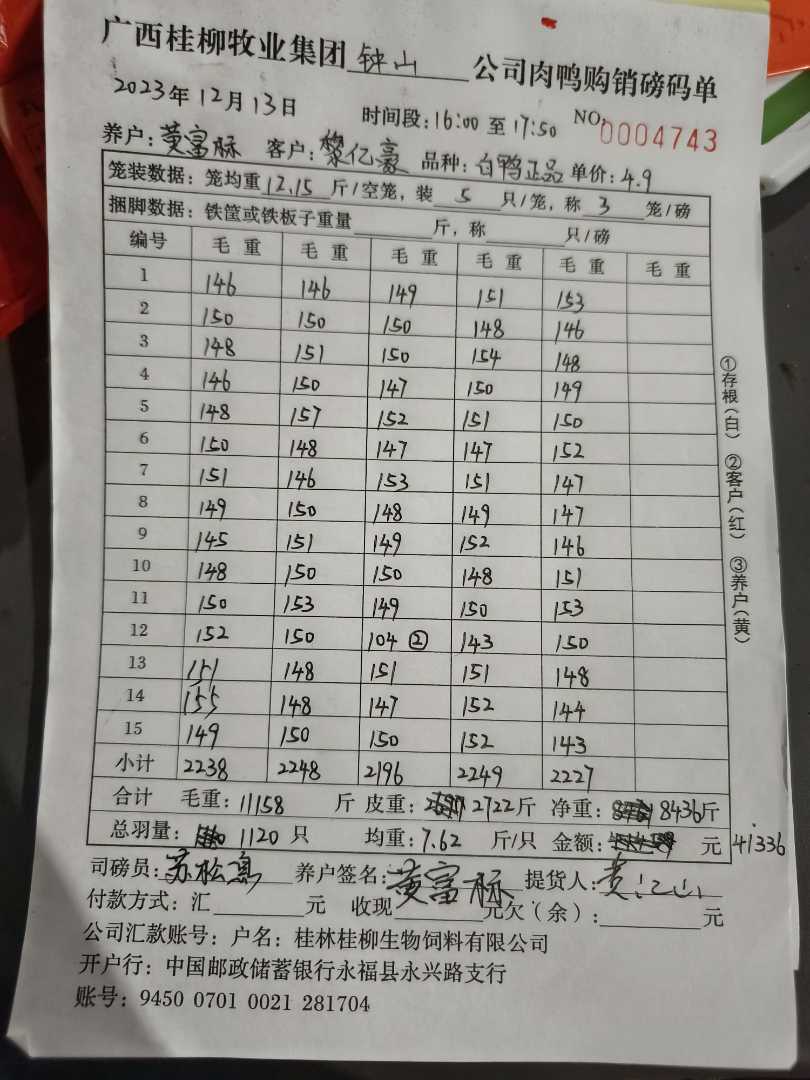 广西桂柳牧业集团 钟山 公司肉鸭购销磅码单
2023年12月13日 时间段:16:00至17:50 NO.0004743
养户:黄富标 客户:黎亿豪 品种:白鸭正品 单价:4.9
笼装数据:笼均重12.15斤/空笼,装5只/笼,称3笼/磅
捆脚数据:铁筐或铁板子重量 斤,称 只/磅
编号 毛重 毛重 毛重 毛重 毛重 毛重
1 146 146 149 151 153
2 150 150 150 148 146
3 148 151 150 154 148
4 146 150 147 150 149
5 148 157 152 151 150
6 150 148 147 147 152
7 151 146 153 151 147
8 149 150 148 149 147
9 145 151 149 152 146
10 148 150 150 148 151
11 150 153 149 150 153
12 152 150 104② 143 150
13 151 148 151 151 148
14 155 148 147 152 144
15 149 150 150 152 143
小计 2238 2248 2196 2249 2227
合计 毛重:11158斤 皮重:2722斤 净重:8436斤
总羽量:1120只 均重:7.62斤/只 金额: 元 41336
司磅员:苏松 养户签名:黄富标 提货人:黄江山
付款方式:汇 元 收现 元欠(余): 元
公司汇款账号:户名:桂林桂柳生物饲料有限公司
开户行:中国邮政储蓄银行永福县永兴路支行
账号:9450 0701 0021 281704
①存根(白) ②客户(红) ③养户(黄)